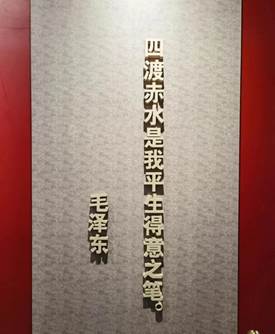 四渡赤水是我平生得意之笔。
毛泽东